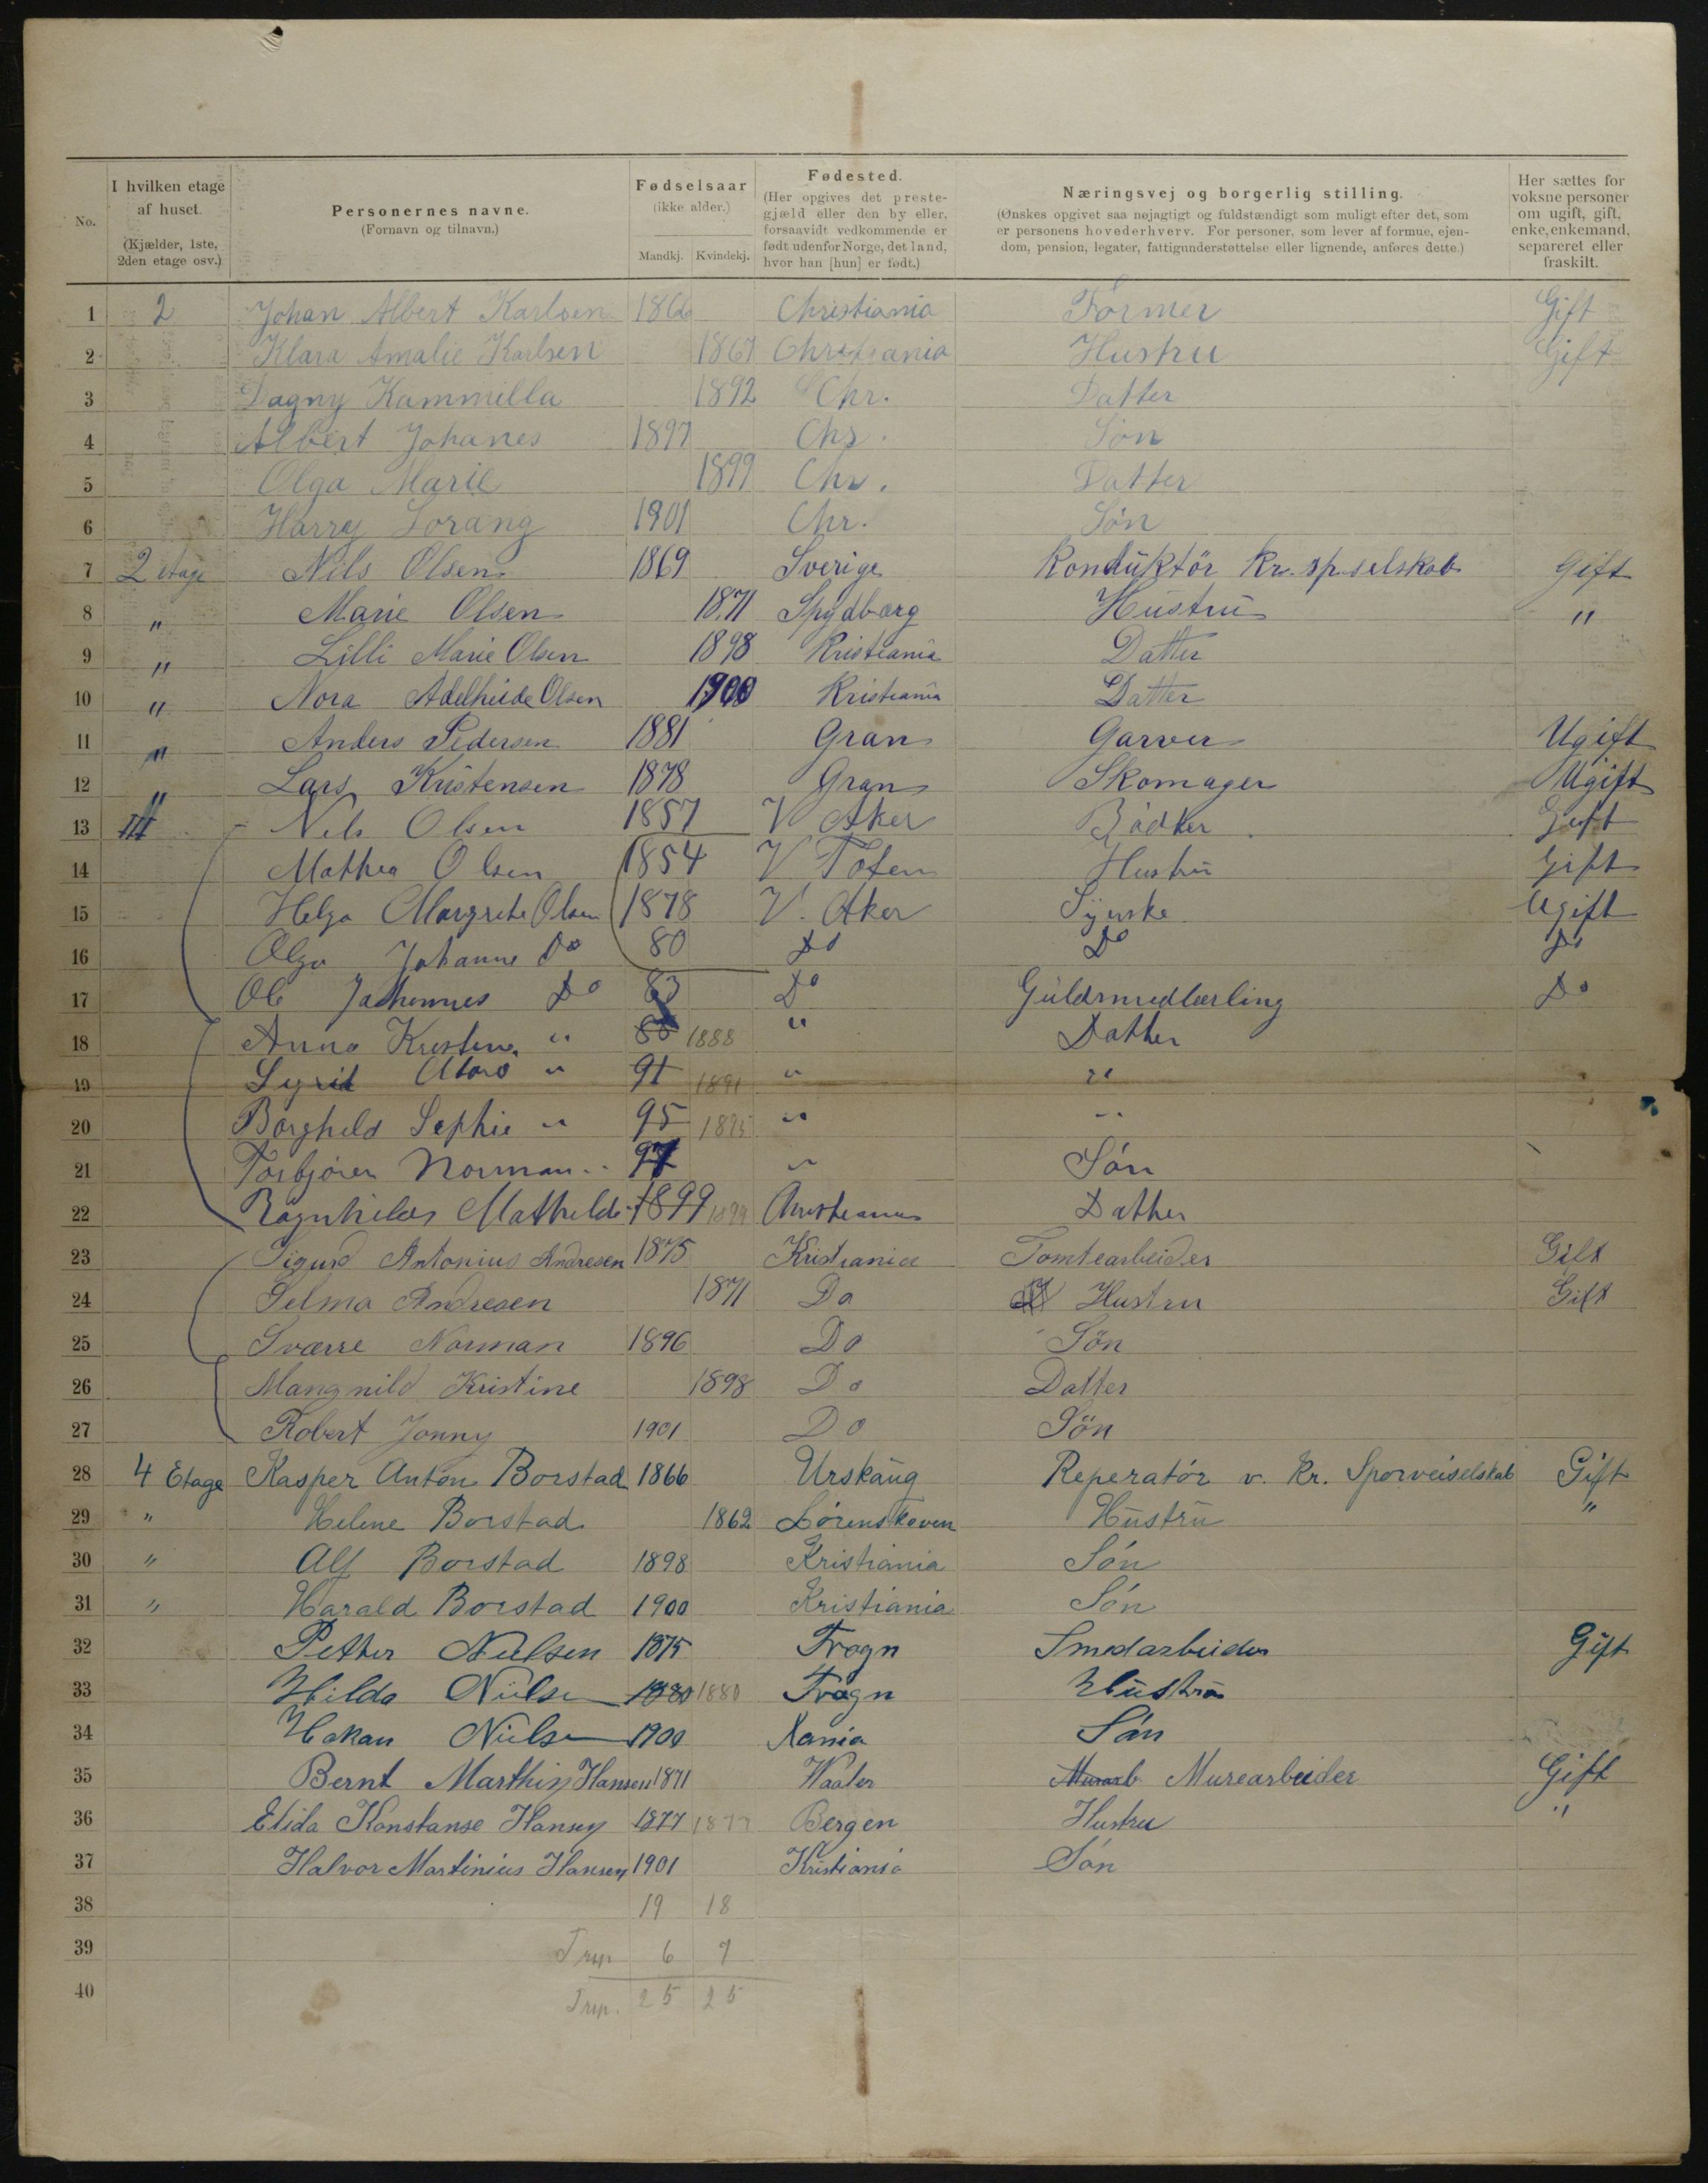 No. I hvilken etage af huset. (Kjælder, 1ste, 2den etage osv.) Personernes navne. (Fornavn og tilnavn.) Fødselsaar (ikke alder.) Mandkj. Kvindekj. Fødested. (Her opgives det prestegjæld eller den by eller, forsaavidt vedkommende er født udenfor Norge, det land, hvor han [hun] er født.) Næringsvej og borgerlig stilling. (Ønskes opgivet saa nøjagtigt og fuldstændigt som muligt efter det, som er personens hovederhverv. For personer, som lever af formue, ejendom, pension, legater, fattigunderstøttelse eller lignende, anføres dette.) Her sættes for voksne personer om ugift, gift, enke, enkemand, separeret eller fraskilt.
1 2 Johan Albert Karlsen 1866 Christiania Former Gift
2 Klara Amalie Karlsen 1867 Christiania Hustru Gift
3 Dagny Kammilla 1892 Chr. Datter
4 Albert Johanes 1897 Chr. Søn
5 Olga Marie 1899 Chr. Datter
6 Harry Lorang 1901 Chr. Søn
7 2 etage Nils Olsen 1869 Sverige Konduktör Kr. sp. selskab Gift
8 " Marie Olsen 1871 Spydbærg Hustru "
9 " Lilli Marie Olsen 1898 Kristiania Datter
10 " Nora Adelheide Olsen 1900 Kristiania Datter
11 " Anders Pedersen 1881 Gran Garver Ugift
12 " Lars Kristensen 1878 Gran Skomager Ugift
13 III Nils Olsen 1857 V Aker Bødker Gift
14 Mathea Olsen 1854 V Toten Hustru Gift
15 Helga Margrete Olsen 1878 V. Aker Syerske Ugift
16 Olga Johanne Do 80 Do Do Do
17 Ole Johannes Do 83 Do Guldsmedlærling Do
18 Anna Kristine " 88 1888 " Datter
19 " 91 1891 " "
20 Borghild Sophie " 95 1895 " "
21 Torbjørn Norman " 97 " Søn
22 Ragnhilda Mathilde 1899 1899 Christiania Datter
23 Sigurd Antonius Andresen 1875 Kristiania Tomtearbeider Gift
24 Selma Andresen 1871 Do Hustru Gift
25 Sværre Norman 1896 Do Søn
26 Mangnild Kristine 1898 Do Datter
27 Robert Jonny 1901 Do Søn
28 4 Etage Kasper Anton Borstad 1866 Urskaug Reperatör v. Kr. Sporveiselskab Gift
29 " Helene Borstad 1862 Lørenskoven Hustru "
30 " Alf Borstad 1898 Kristiania Søn
31 " Harald Borstad 1900 Kristiania Søn
32 Petter Nielsen 1875 Frogn Smedarbeider Gift
33 Hilda Nielsen 1880 1880 Frogn Hustru
34 Hakan Nielsen 1900 Kania Søn
35 Bernt Marthin Hansen 1871 Vaaler Murarb. Murearbeider Gift
36 Elida Konstanse Hansen 1877 1877 Bergen Hustru "
37 Halvor Martinius Hansen 1901 Kristiania Søn
38 19 18
39 6 7
40 25 25